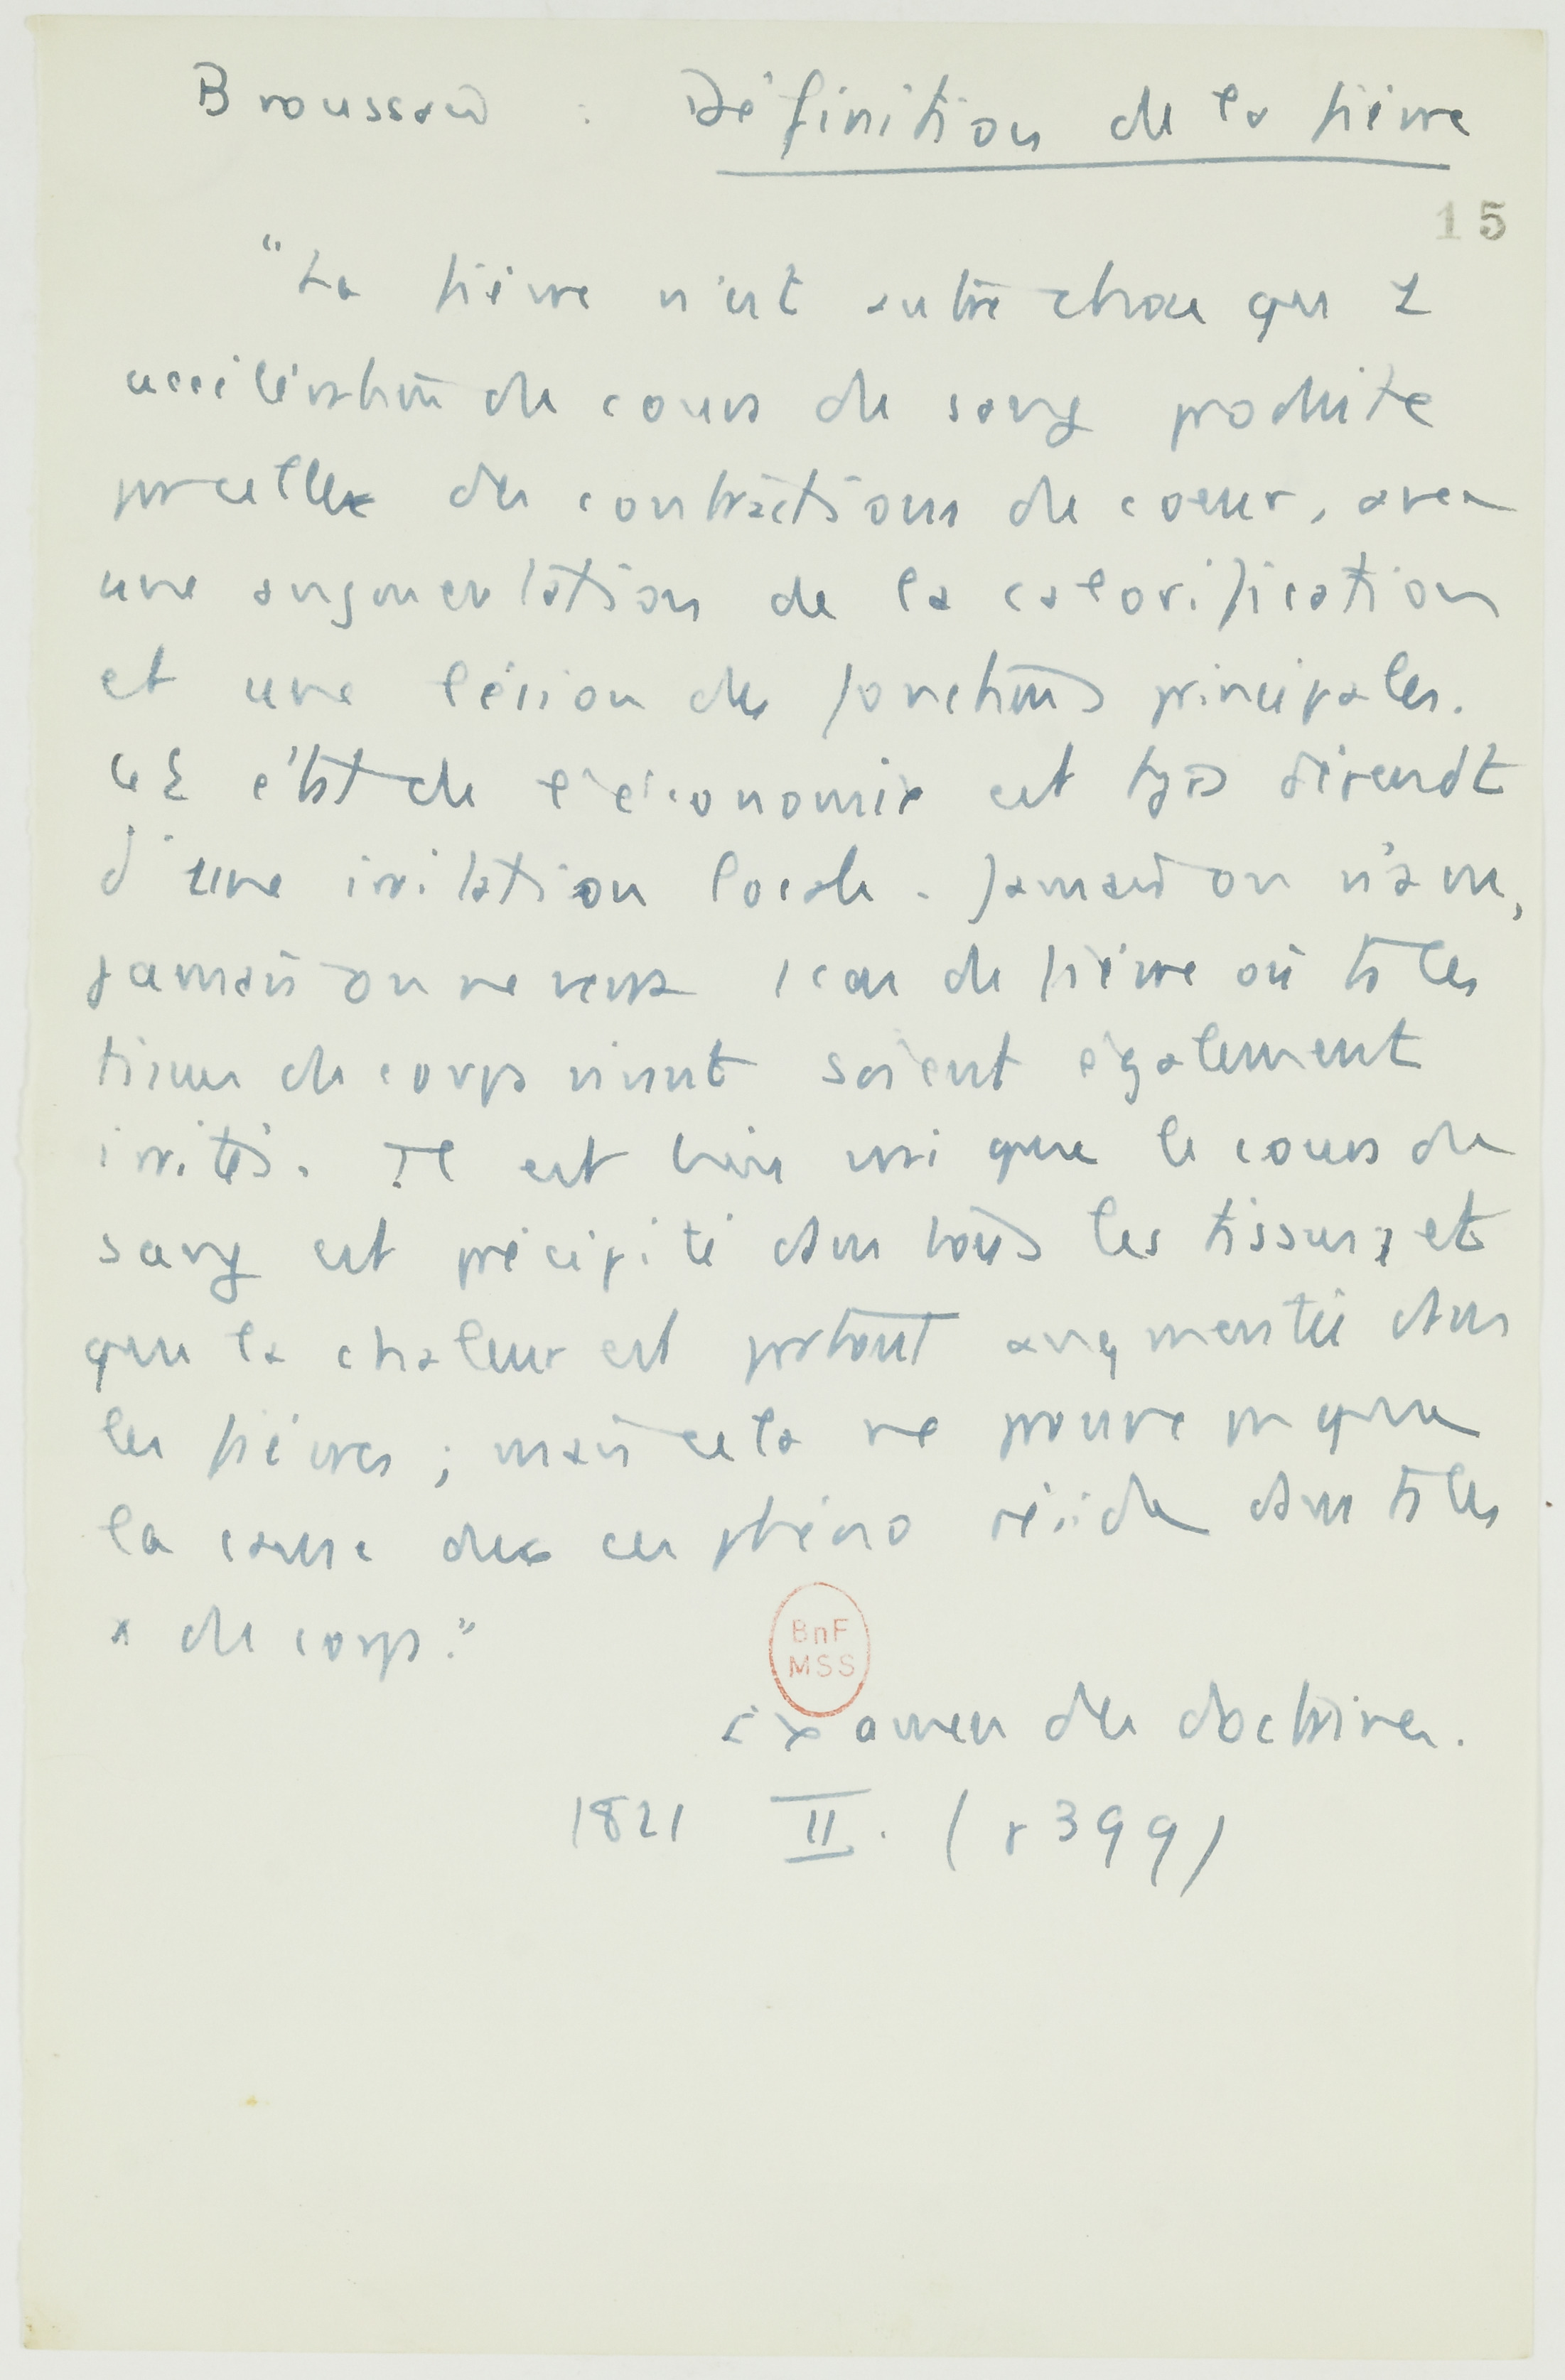 Broussais : Définition de la fièvre
15
"La fièvre n'est autre chose qu 1
accélération du cours du sang produite
par celle des contractions du coeur, avec
une augmentation de la calorification
et une lésion des fonctions principales.
Cet état de l'économie est tjrs dépendt
d'une irritation locale. Jamais on n'a vu,
jamais on ne verra 1 cas de fièvre où ts les
tissus du corps vivant soient également
irrités. Il est bien vrai que le cours du
sang est précipité dans tous les tissus, et
que la chaleur est partout augmentée dans
les fièvres ; mais cela ne prouve pas que
la cause de ces phéno réside dans ts les
x du corps."
BnF
MSS
Examen des doctrines.
1821 II. (p 399)